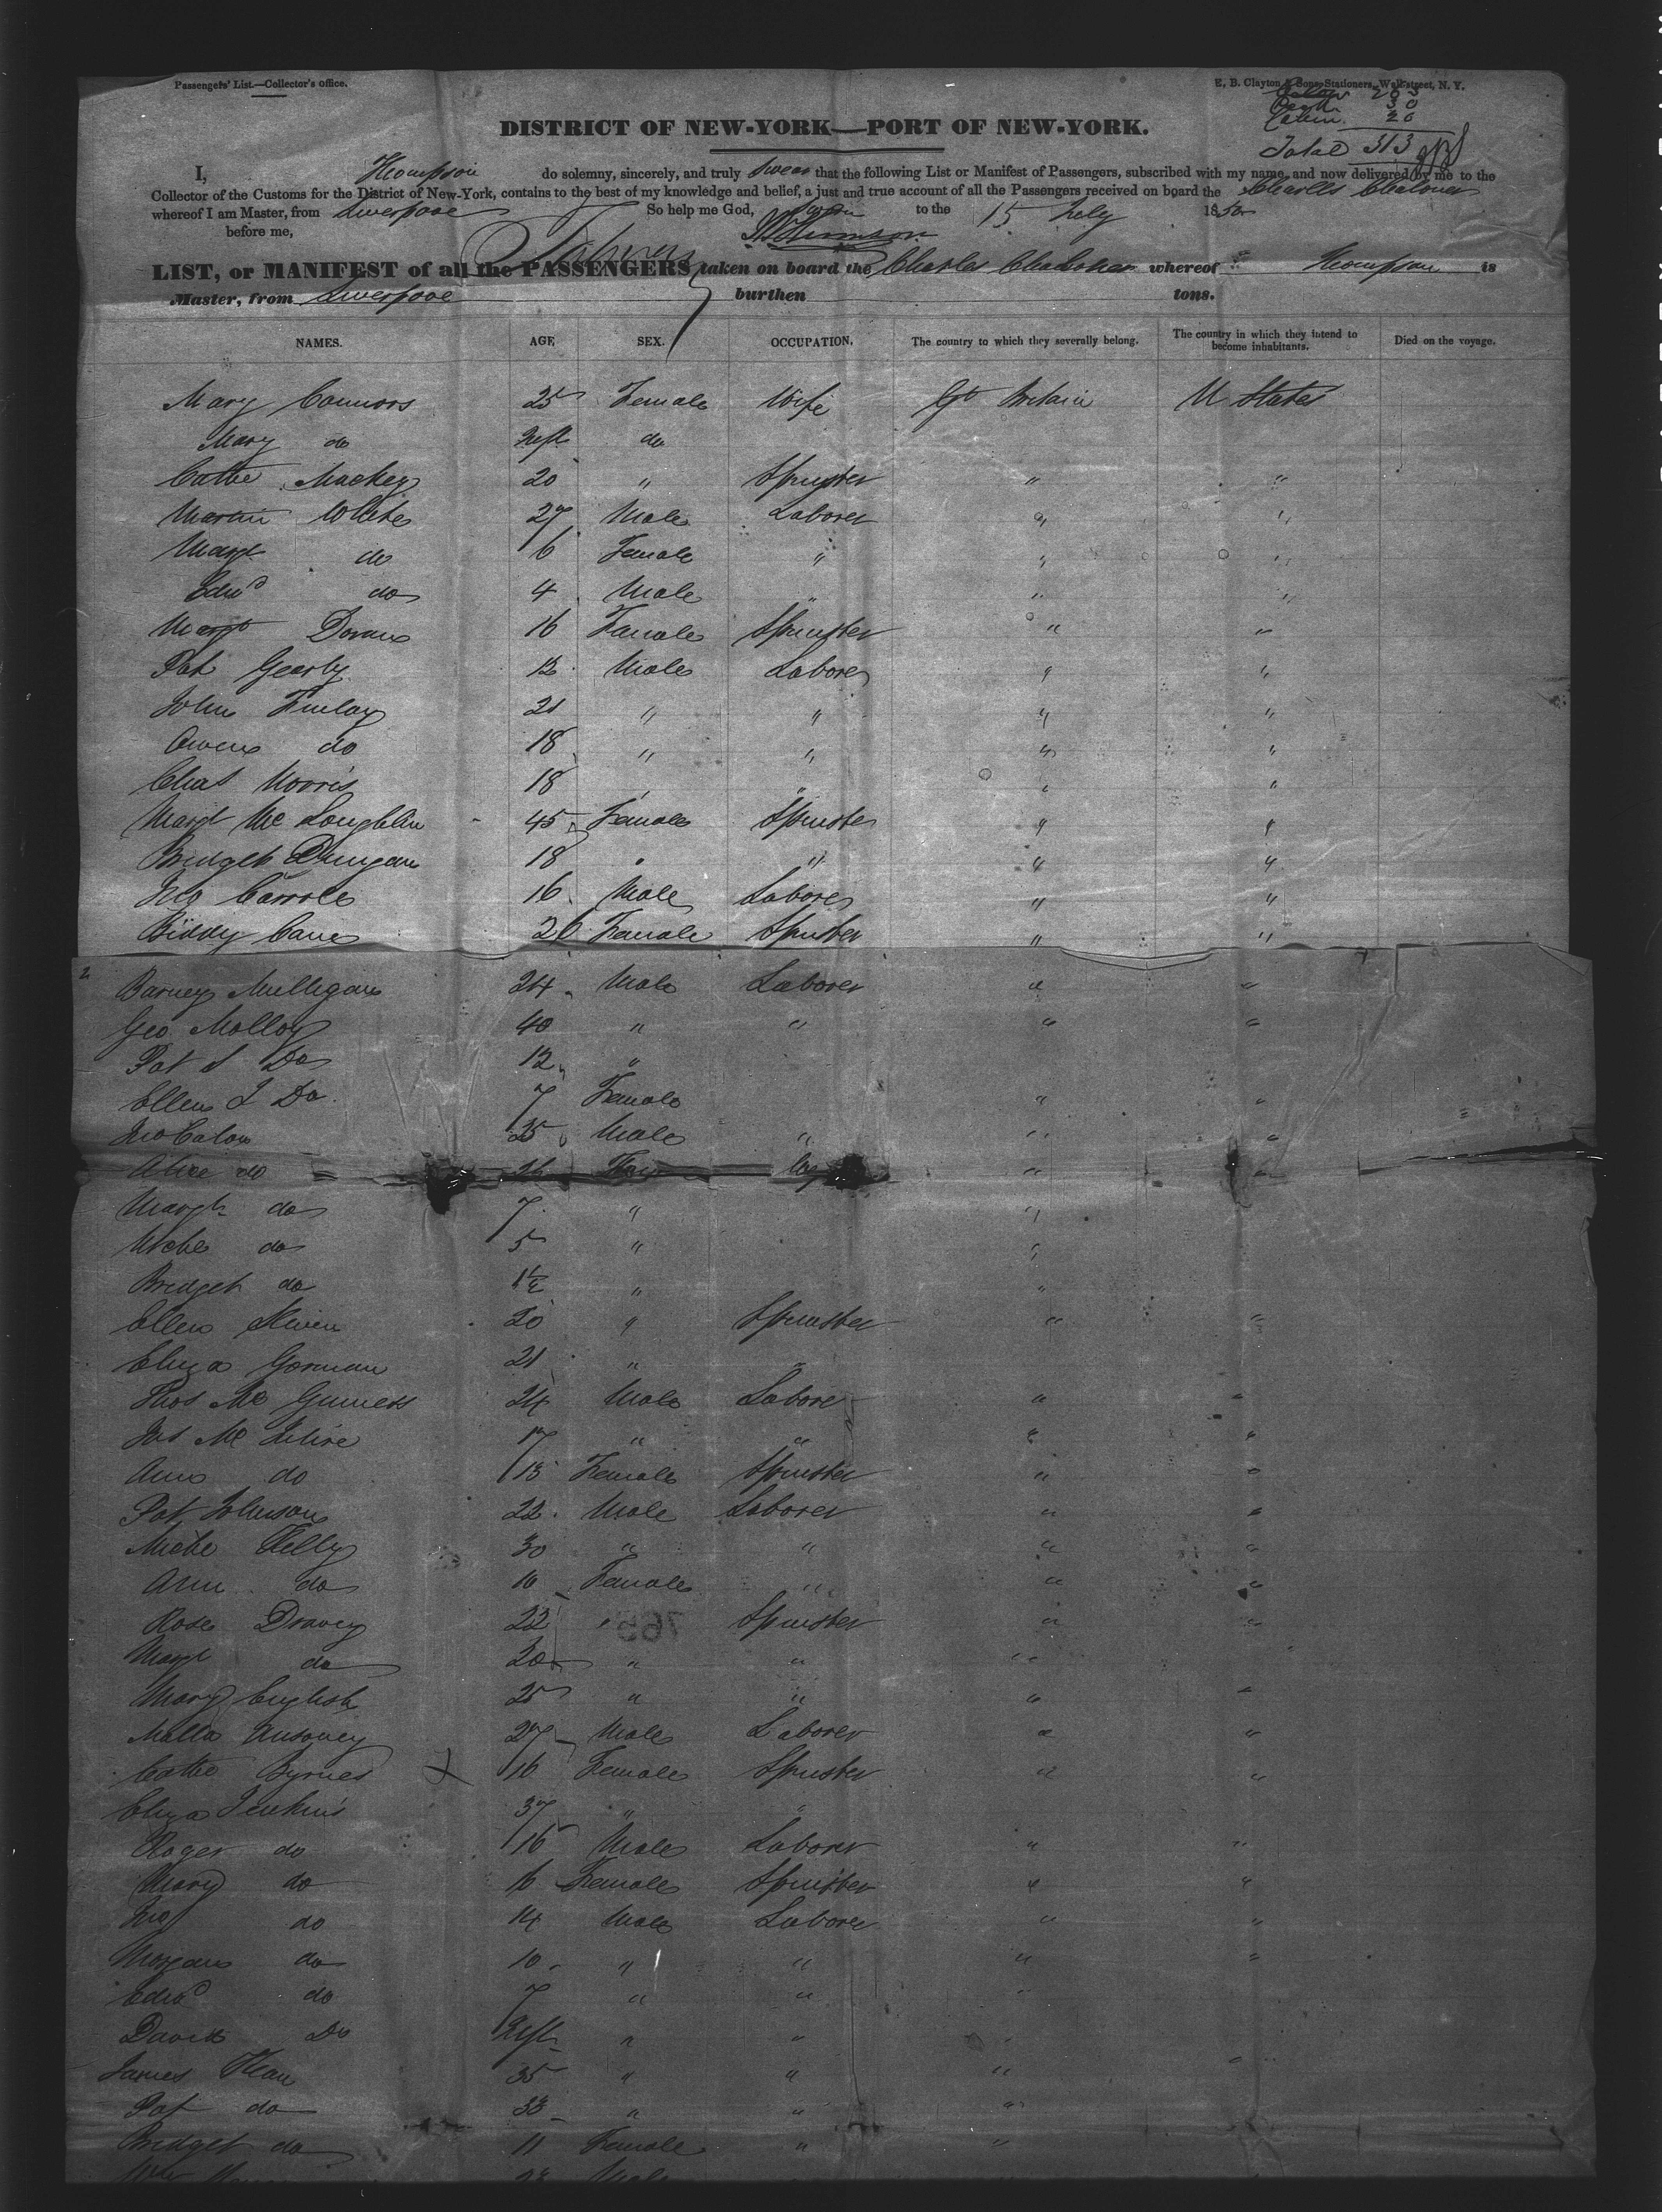 Passengers' List.—Collector's office.
E. B. Clayton & Sons, Stationers, Wall-street, N. Y.
263
30
Cabin 20
Total 313
DISTRICT OF NEW-YORK—PORT OF NEW-YORK.
I, Thompson do solemny, sincerely, and truly swear that the following List or Manifest of Passengers, subscribed with my name, and now delivered by me to the
Collector of the Customs for the District of New-York, contains to the best of my knowledge and belief, a just and true account of all the Passengers received on board the Charles Chaloner
whereof I am Master, from Liverpool So help me God, to the 15 July 1850
before me,
LIST, or MANIFEST of all the PASSENGERS taken on board the Charles Chaloner whereof Thompson is
Master, from Liverpool burthen tons.
NAMES. AGE SEX. OCCUPATION. The country to which they severally belong. The country in which they intend to become inhabitants. Died on the voyage.
Mary Connors 25 Female Wife Gt Britain U States
Mary do Inft do
Cathe Mackey 20 " Spinster " "
Martin White 27 Male Laborer " "
Margt do 6 Female " " "
Edwd do 4 Male " " "
Margt Doran 16 Female Spinster " "
Pat Gearty 12 Male Laborer " "
John Finlay 21 " " " "
Owen do 18 " " " "
Chas Morris 18 " " " "
Margt Mc Loughlin 45 Female Spinster " "
Bridget Dungan 18 " " " "
Jno Carrole 16 Male Laborer " "
Biddy Cane 26 Female Spinster " "
2
Barney Mulligan 24 Male Laborer " "
Geo Molloy 40 " " " "
Pat S Do 12 "
Ellen J Do 7 Female " "
Jno Calan 25 Male " " "
Alice do " "
Margt do 7 " "
do 5 " "
Bridget do 1½ " "
Ellen 20 " Spinster " "
Eliza Gorman 21 " "
Thos Mc Guiness 24 Male Laborer " "
Jas Mc 17 " " " "
Ann do 13 Female Spinster " "
Pat Johnson 22 Male Laborer " "
Miche Kelly 30 " " " "
Ann do 10 Female " " "
Rose 22 " Spinster " "
Margt do 20 " " "
Mary English 25 " " " "
27 Male Laborer " "
Cathe Byrnes X 16 Female Spinster " "
Eliza Jenkins 37 " "
Roger do 16 Male Laborer " "
Mary do 16 Female Spinster " "
Jno do 14 Male Laborer " "
Morgan do 10 " " " "
Edwd do 7 " " "
David Do Inft " " "
James Kean 35 " " " "
Pat do 33 " " "
Bridget do 11 Female " "
Male